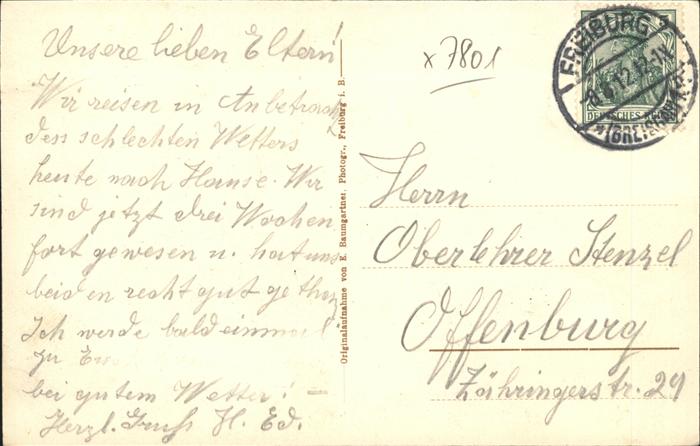 Unsere lieben Eltern!
Wir reisen in Anbetracht
des schlechten Wetters
heute nach Hause. Wir
sind jetzt drei Wochen
fort gewesen u. hat uns
beiden recht gut gethan
Ich werde bald einmal
zu
bei gutem Wetter! –
Herzl. Gruss H. Ed.
Originalaufnahme von E. Baumgartner, Photogr., Freiburg i. B.
x 7801
FREIBURG
(BREISGAU)
DEUTSCHES REICH
5
Herrn
Oberlehrer Stenzel
Offenburg
Zähringerstr. 29